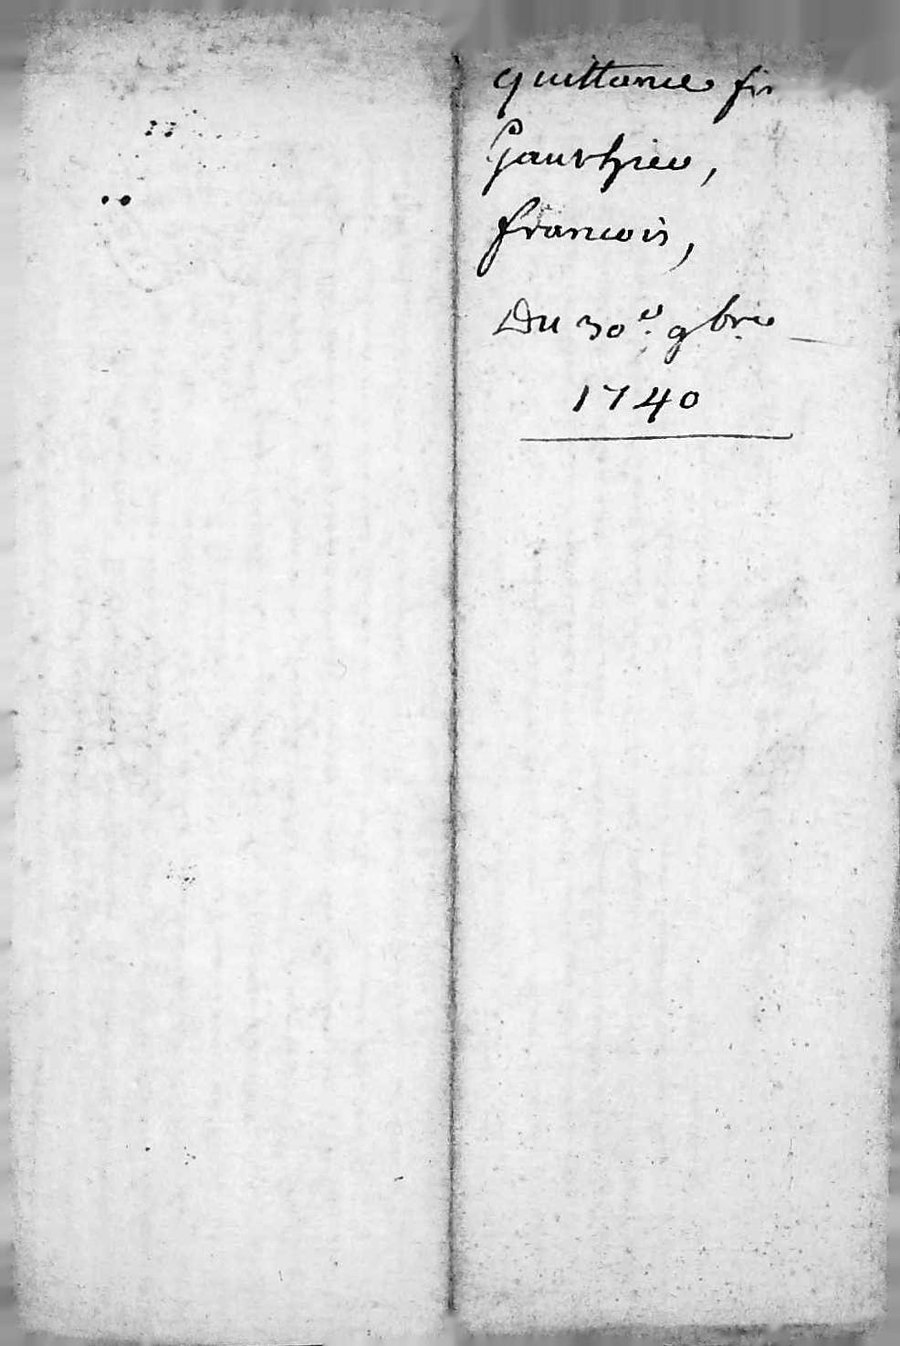 quittance fr
Gaurhier,
francois,
Du 30e. 9bre
1740